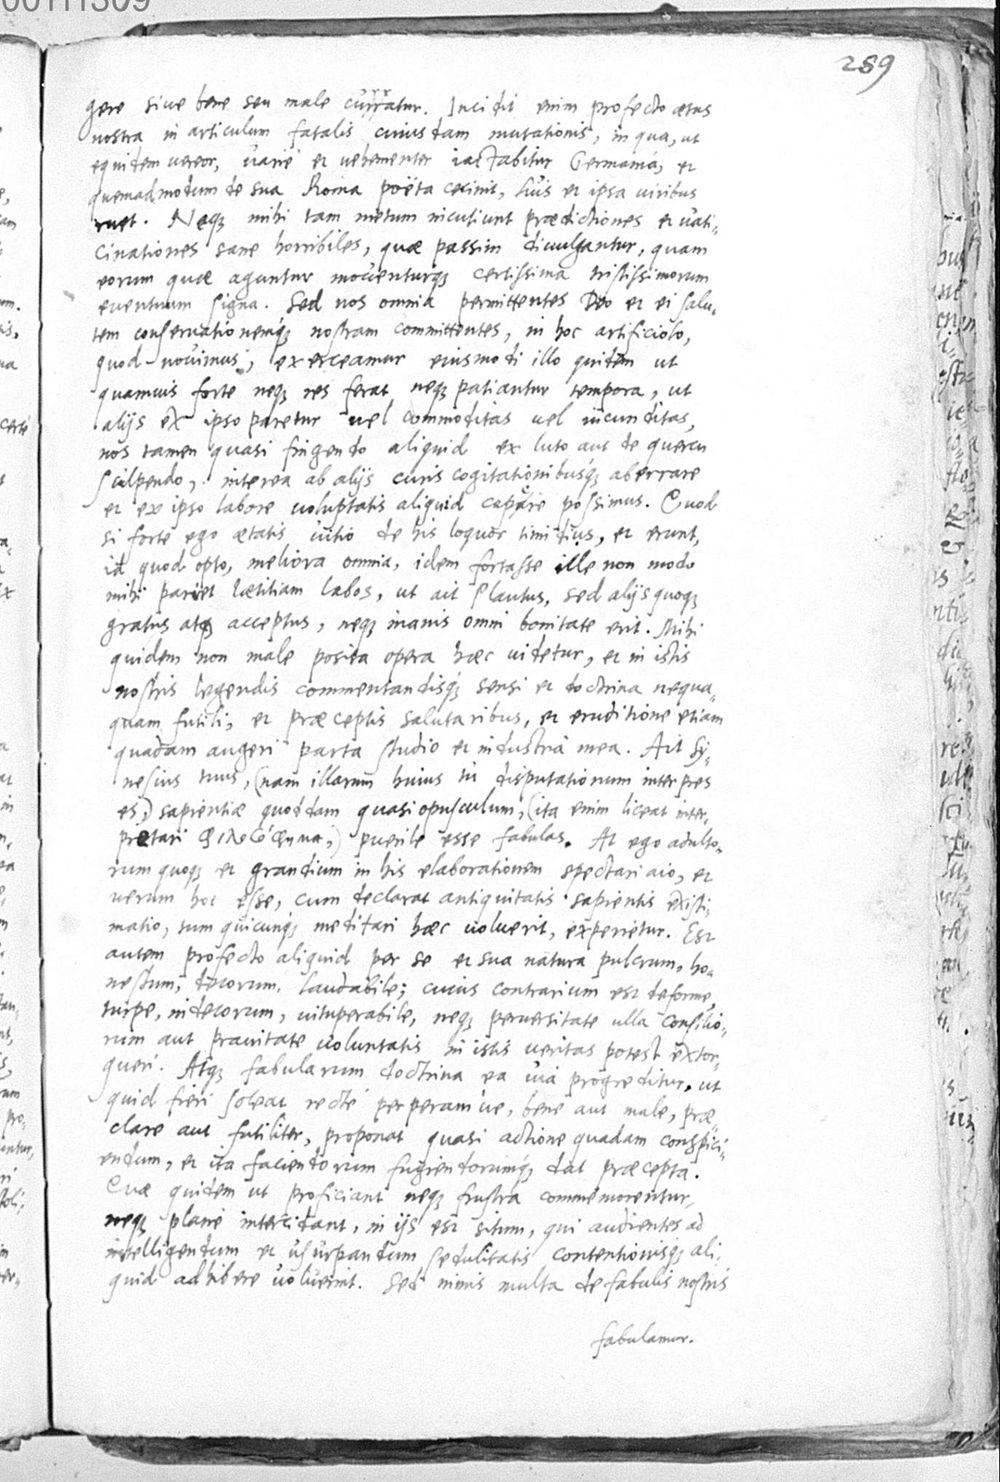 289
gere siue bene seu male curratur. Incidit enim profecto ætas
nostra in articulum fatalis cuiusdam mutationis, in qua, ut
equidem uereor, uarie et uehementer iactabitur Germania, et
quemadmodum de sua Roma poëta cecinit, suis et ipsa uiribus
ruet. Neqꝫ mihi tam metum incutiunt prædictiones et uati-
cinationes sane horribiles, quæ passim diuulgantur, quam
eorum quæ aguntur mouenturqꝫ certissima tristissimorum
euentuum signa. Sed nos omnia permittentes Deo et ei salu-
tem conseruationemqꝫ nostram committentes, in hoc artificiolo,
quod nouimus, exerceamur eiusmodi illo quidem ut
quamuis forte neqꝫ res ferat neqꝫ patiantur tempora, ut
alijs ex ipso paretur uel commoditas uel iucunditas,
nos tamen quasi fingendo aliquid ex luto aut de quercu
sculpendo, interea ab alijs curis cogitationibusqꝫ aberrare
et ex ipso labore uoluptatis aliquid capere possimus. Quod
si forte ego ætatis uitio de his loquor timidius, et erunt,
id quod opto, meliora omnia, idem fortasse ille non modo
mihi pariet lætitiam labos, ut ait Plautus, sed alijs quoqꝫ
gratus atqꝫ acceptus, neqꝫ inanis omni bonitate erit. Mihi
quidem non male posita opera hæc uidetur, et in istis
nostris legendis commentandisqꝫ sensi et doctrina nequa-
quam futili, et præceptis salutaribus, et eruditione etiam
quadam augeri parta studio et industria mea. Ait Sy-
nesius tuus, (nam illarum huius tu disputationum interpres
es,) sapientiæ quoddam quasi opusculum, (ita enim liceat inter-
pretari            ,) puerile esse fabulas. At ego adulto-
rum quoqꝫ et grandium in his elaborationem spectari aio, et
uerum hoc esse, cum declarat antiquitatis sapientis existi-
matio, tum quicunqꝫ meditari hæc uoluerit, experietur. Est
autem profecto aliquid per se et sua natura pulcrum, ho-
nestum, decorum, laudabile; cuius contrarium est deforme,
turpe, indecorum, uituperabile, neqꝫ peruersitate ulla consilio-
rum aut prauitate uoluntatis in istis ueritas potest extor-
queri. Atqꝫ fabularum doctrina ea uia progreditur, ut
quid fieri soleat recte perperamue, bene aut male, præ-
clare aut futiliter, proponat quasi actione quadam conspici-
endum, et ita faciendorum fugiendorumqꝫ dat præcepta.
Quæ quidem ut proficiant neqꝫ frustra commemorentur,
neqꝫ plane intercidant, in ijs est situm, qui audientes ad
intelligendum et usurpandum sedulitatis contentionisqꝫ ali-
quid adhibere uoluerint. Sed nimis multa de fabulis nostris
fabulamur.